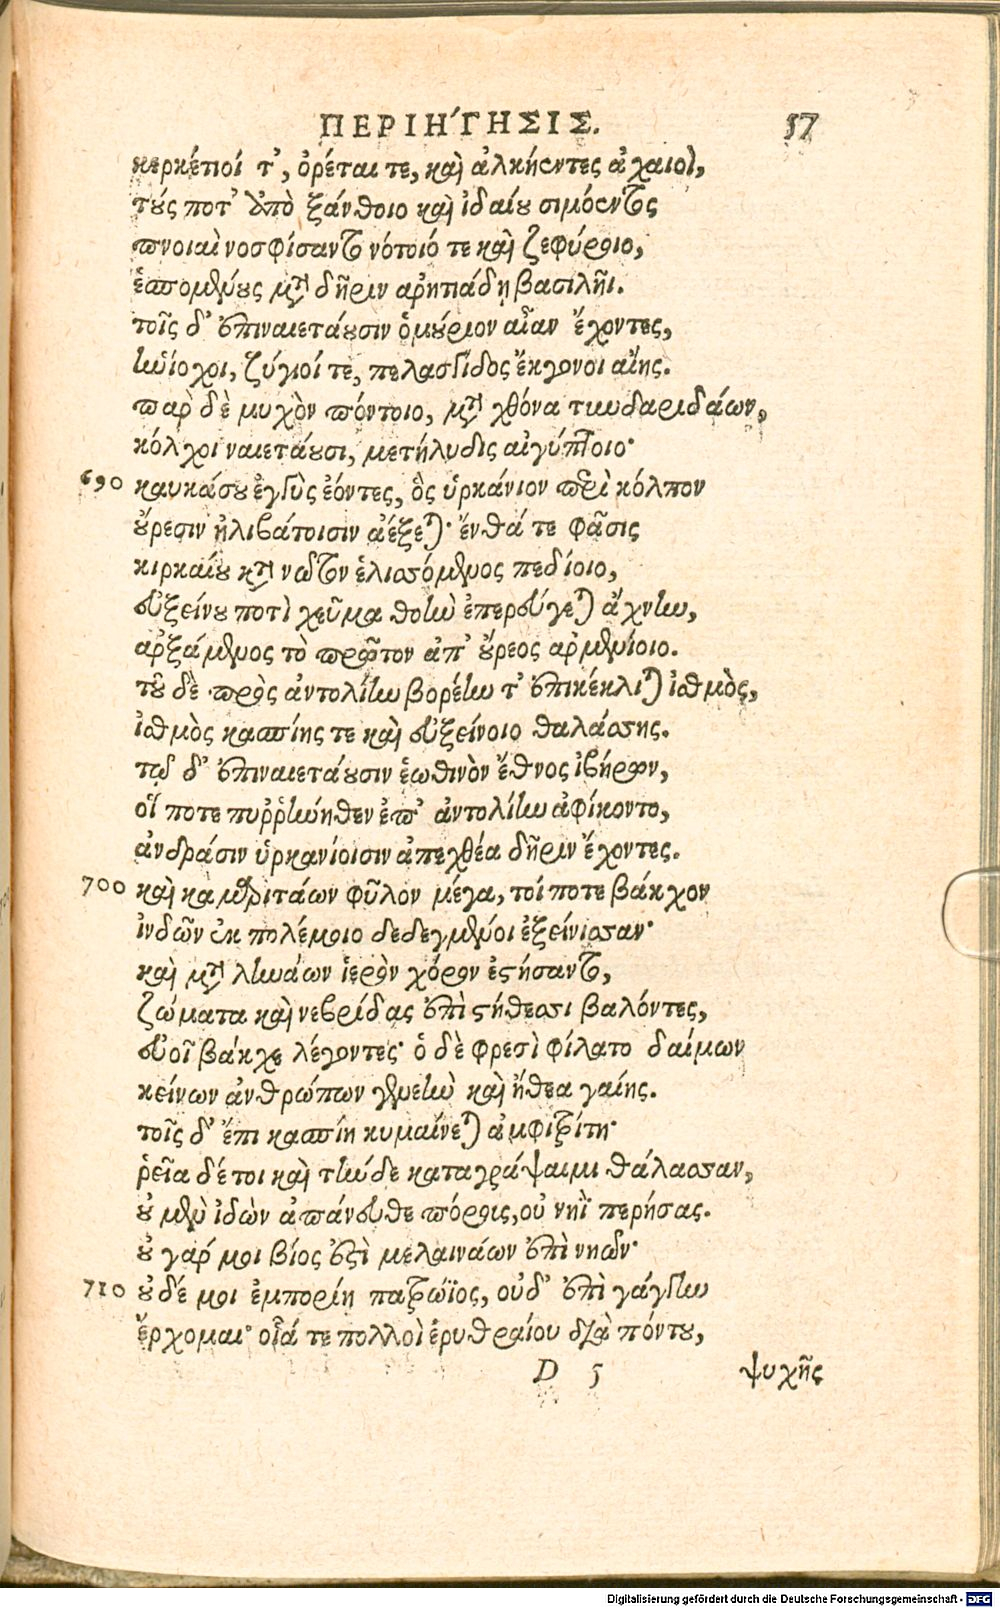 ΠΕΡΙΗΓΗΣΙΣ. 57
κερκέτιοί τ', ὀρέται τε, καὶ ἀλκήεντες ἀχαιοὶ,
τούς ποτ' ἀπὸ ξάνθοιο καὶ ἰδαίου σιμόεντος
πνοιαὶ νοσφίσαντο νότοιό τε καὶ ζεφύροιο,
ἑσπομένους μετὰ δῆριν ἀρητιάδῃ βασιλῆι.
τοῖς δ' ἐπιναιετάουσιν ὁμούριον αἶαν ἔχοντες,
ἡνίοχοι, ζύγιοί τε, πελασγίδος ἔκγονοι αἴης.
παρὰ δὲ μυχὸν πόντοιο, μετὰ χθόνα τυνδαριδάων,
κόλχοι ναιετάουσι, μετήλυδες αἰγύπτοιο·
690 καυκάσου ἐγγὺς ἐόντες, ὃς ὑρκάνιον περὶ κόλπον
οὔρεσιν ἠλιβάτοισιν ἀέξεται· ἔνθά τε φᾶσις
κιρκαίου κατὰ νῶτον ἑλισσόμενος πεδίοιο,
εὐξείνου ποτὶ χεῦμα θοὴν ἐπερεύγεται ἄχνην,
ἀρξάμενος τὸ πρῶτον ἀπ' οὔρεος ἀρμενίοιο.
τοῦ δὲ πρὸς ἀντολίην βορέην τ' ἐπικέκλιται ἰσθμὸς,
ἰσθμὸς κασπίης τε καὶ εὐξείνοιο θαλάσσης.
τῷ δ' ἐπιναιετάουσιν ἑωθινὸν ἔθνος ἰβήρων,
οἵ ποτε πυῤῥήνηθεν ἐπ' ἀντολίην ἀφίκοντο,
ἀνδράσιν ὑρκανίοισιν ἀπεχθέα δῆριν ἔχοντες.
700 καὶ καμαριτάων φῦλον μέγα, τοί ποτε βάκχον
ἰνδῶν ἐκ πολέμοιο δεδεγμένοι ἐξείνισσαν·
καὶ μετὰ ληνάων ἱερὸν χόρον ἐστήσαντο,
ζώματα καὶ νεβρίδας ἐπὶ στήθεσσι βαλόντες,
εὐοῖ βάκχε λέγοντες· ὁ δὲ φρεσὶ φίλατο δαίμων
κείνων ἀνθρώπων γενεὴν καὶ ἤθεα γαίης.
τοῖς δ' ἔπι κασπίη κυμαίνεται ἀμφιτρίτη·
ῥεῖα δέ τοι καὶ τήνδε καταγράψαιμι θάλασσαν,
οὐ μὲν ἰδὼν ἀπάνευθε πόρους, οὐ νηῒ περήσας.
οὐ γάρ μοι βίος ἐστὶ μελαινάων ἐπὶ νηῶν·
710 οὐδέ μοι ἐμπορίη πατρώϊος, οὐδ' ἐπὶ γάγγην
ἔρχομαι· οἷά τε πολλοὶ ἐρυθραίου διὰ πόντου,
D 5 ψυχῆς
Digitalisierung gefördert durch die Deutsche Forschungsgemeinschaft - DFG